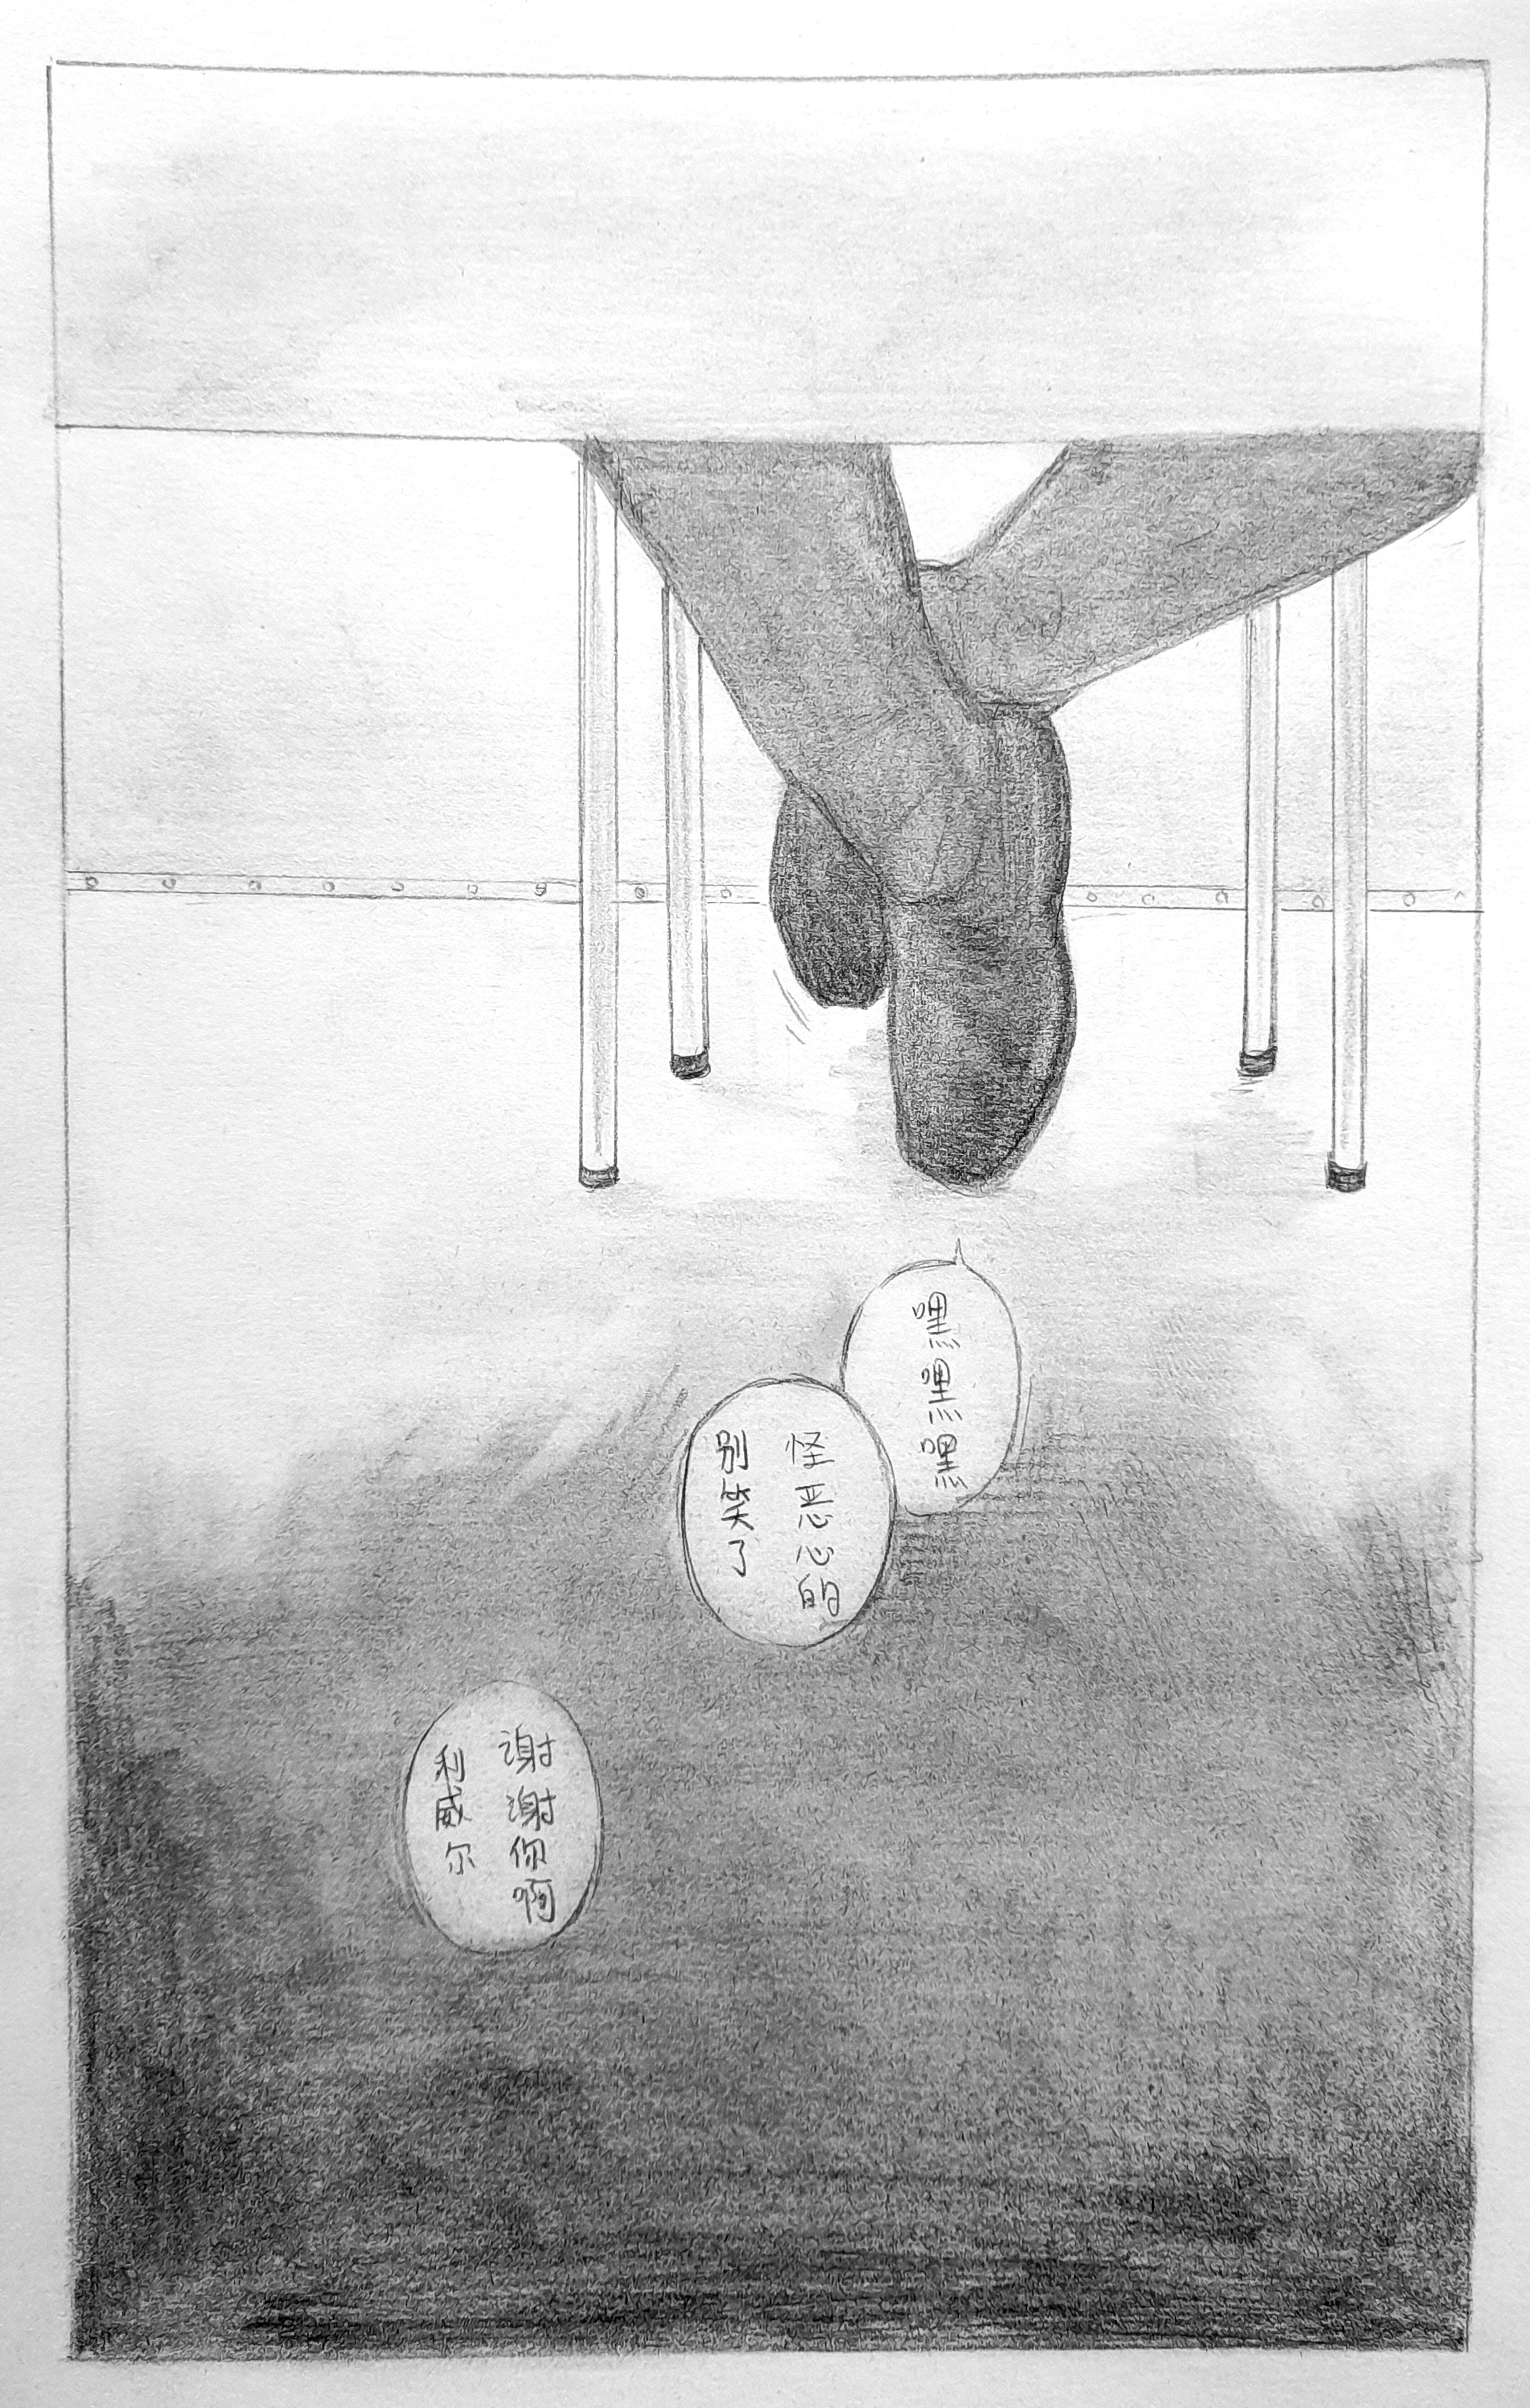 嘿嘿嘿
怪恶心的
别笑了
谢谢你啊
利威尔